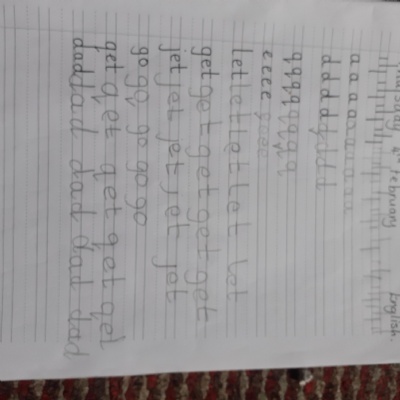 Thursday 4th February English.
a a a a a a a a a a a
d d d d d d d d
q q q q q q q q
e e e e e e e e
let let let let let
get get get get get get
jet jet jet jet jot
go go go go go
get get get get get
dad dad dad dad dad